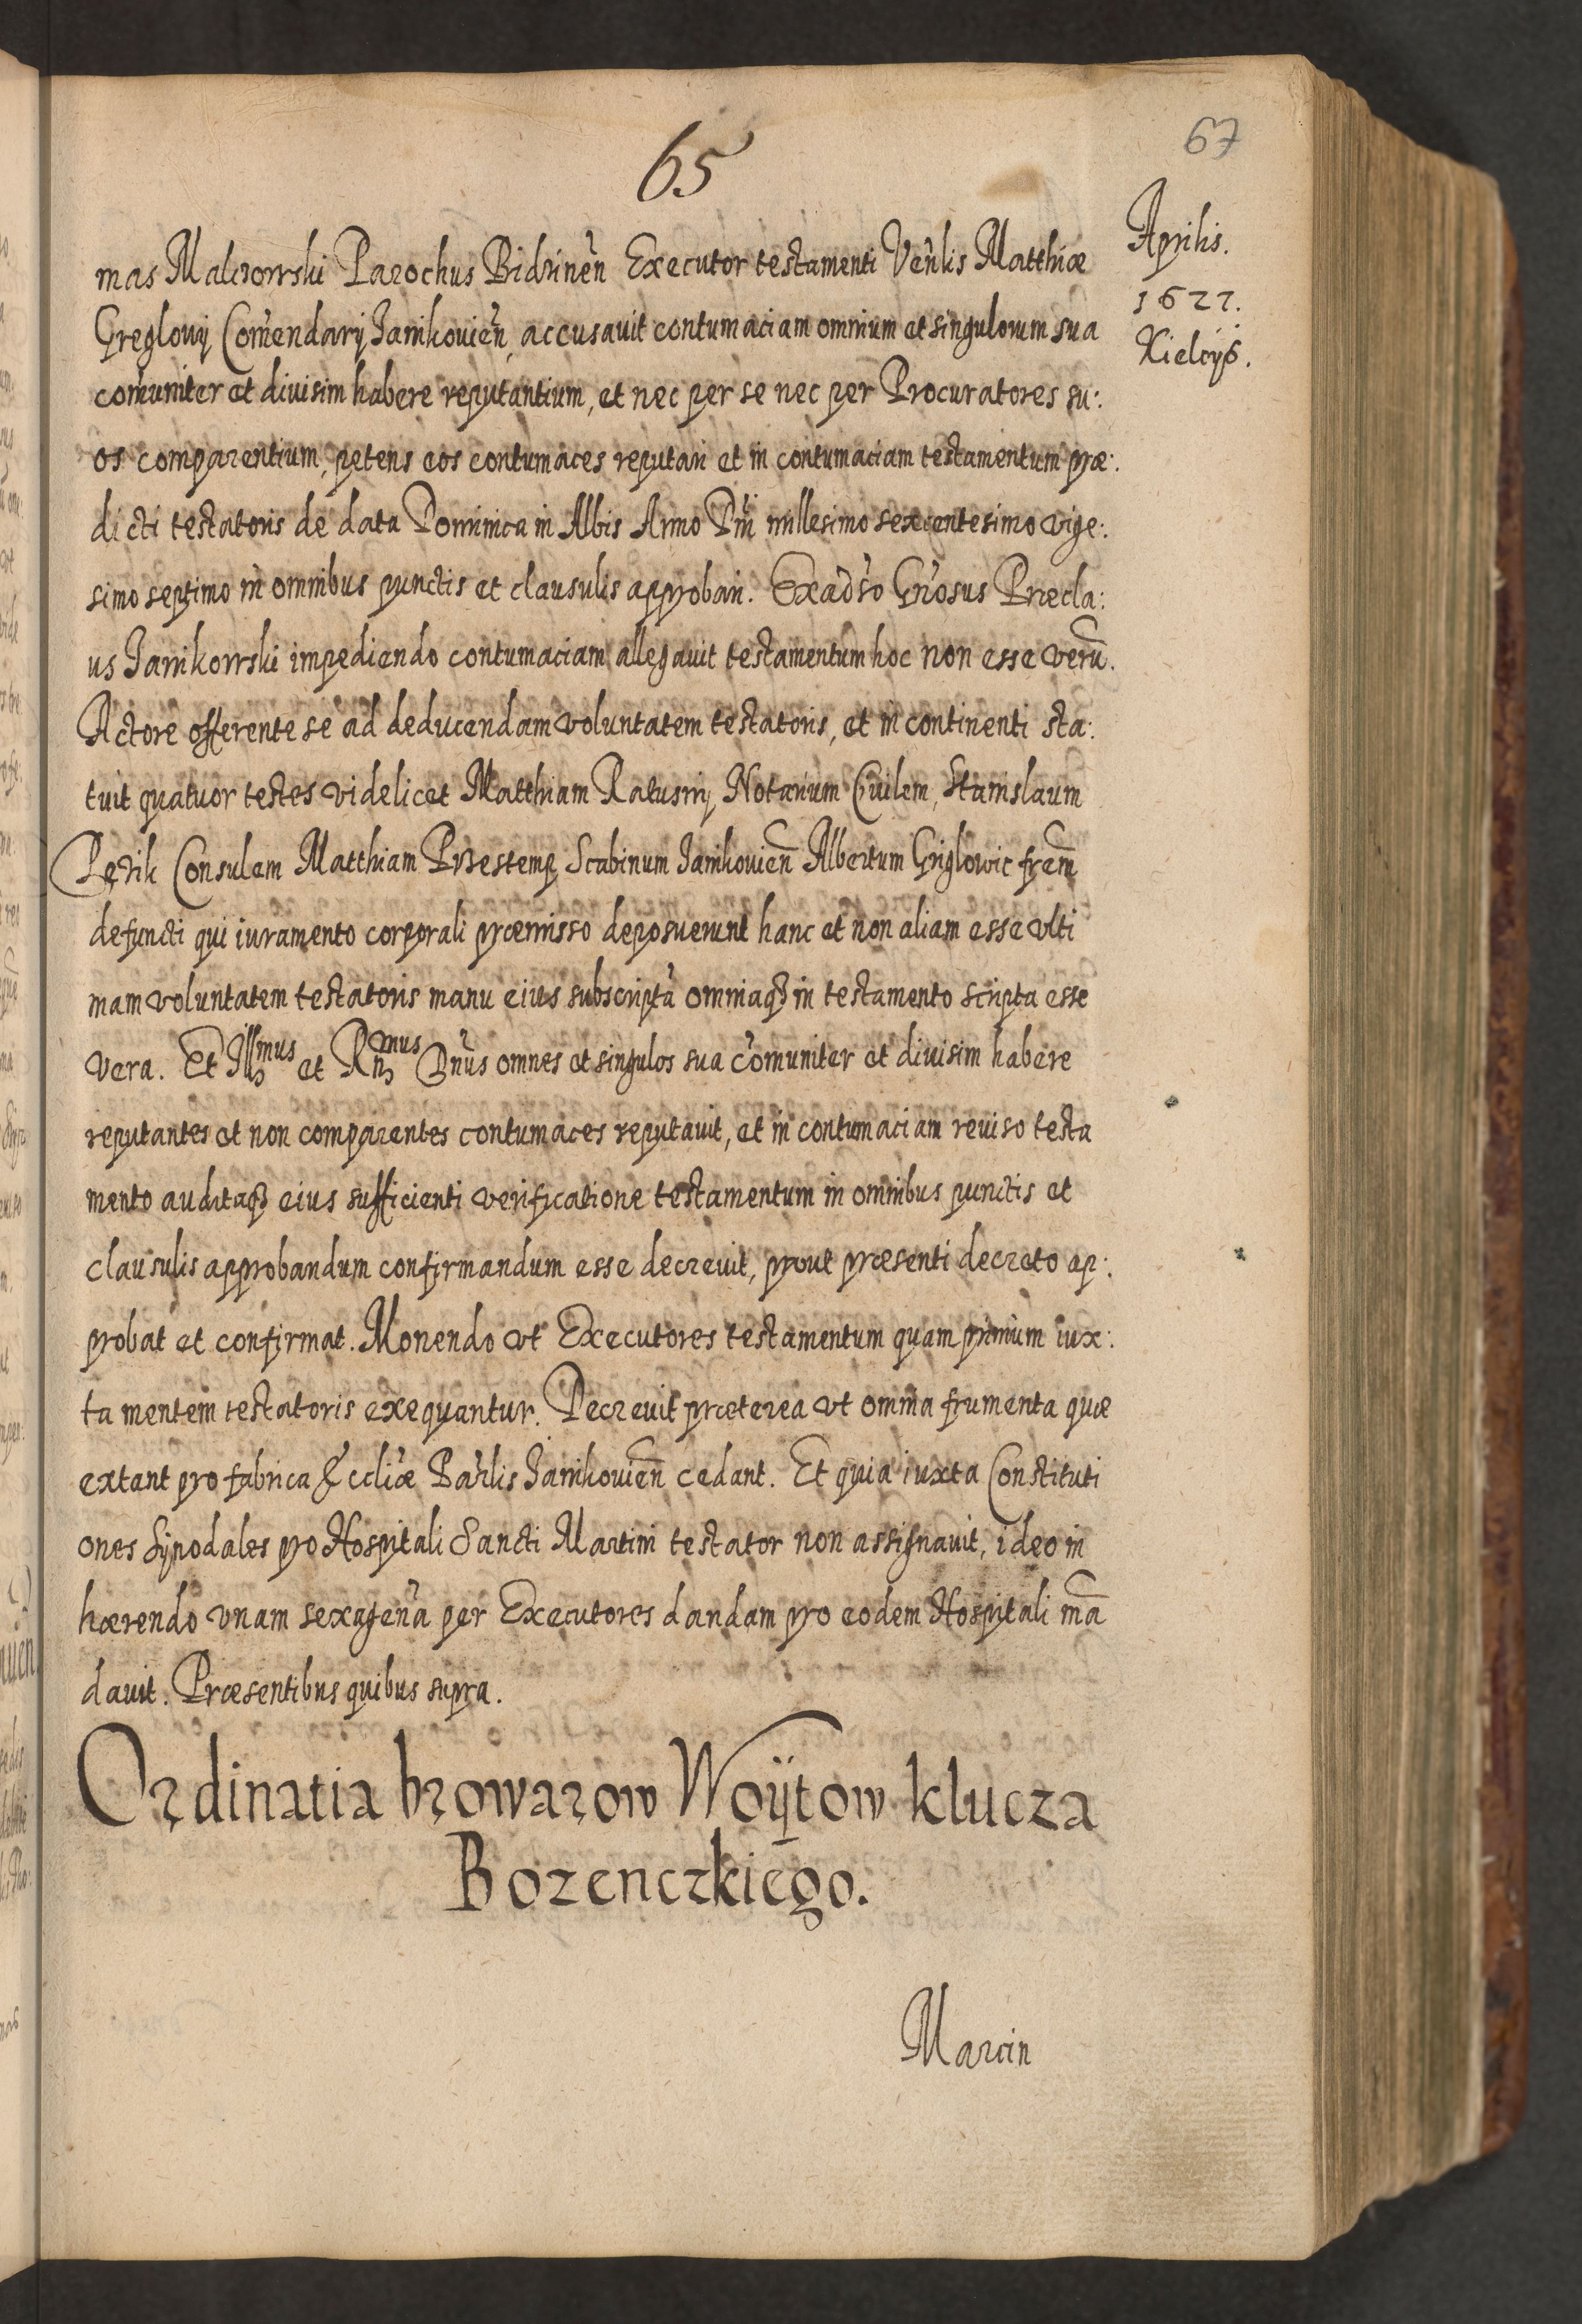 65
67
Aprilis.
1627.
Kielcijs.
mas Malczowski Parochus Bidzineñ Executor testamenti Veñlis Matthiæ
Greglowij Com̃endarij Janikovieñ, accusavit contumaciam omnium et singulorum sua
com̃uniter et divisim habere reputantium, et nec per se nec per Procuratores su:
os comparentium, petens eos contumaces reputari et in contumaciam testamentum præ:
dicti testatoris de data Dominica in Albis Anno Dñi millesimo sexcentesimo vige:
simo septimo in omnibus punctis et clausulis approbari. Exadṽso Gñosus Præcla:
us Janikowski impediendo contumaciam allegavit testamentum hoc non esse verũ.
Actore offerente se ad deducendam voluntatem testatoris, et in continenti sta:
tuit quatuor testes videlicet Matthiam Ratusnij Notarium Civilem, Stanislaum
Petrik Consulem Matthiam Przestemp Scabinum Janikovieñ Albertum Griglowic frem̃
defuncti qui iuramento corporali præmisso deposuerunt hanc et non aliam esse vlti
mam voluntatem testatoris manu eius subscriptã omniaqʒ in testamento scripta esse
vera. Et Illmus et Rñmus Dñus omnes et singulos sua com̃uniter et divisim habere
reputantes et non comparentes contumaces reputavit, et in contumaciam reviso testa
mento auditaqʒ eius sufficienti verificatione testamentum in omnibus punctis et
clausulis approbandum confirmandum esse decrevit, prout præsenti decreto ap:
probat et confirmat. Monendo vt Executores testamentum quam primum iux:
ta mentem testatoris exequantur. Decrevit præterea vt omnia frumenta quæ
extant pro fabrica Eccliæ Pařlis Janikovieñ cedant. Et quia iuxta Constituti
ones Synodales pro Hospitali Sancti Martini testator non assignavit, ideo in
hærendo vnam sexagenã per Executores dandam pro eodem Hospitali mã
davit. Præsentibus quibus supra.
Ordinatia browarow Woÿtow klucza
Bozenczkiego.
Marcin